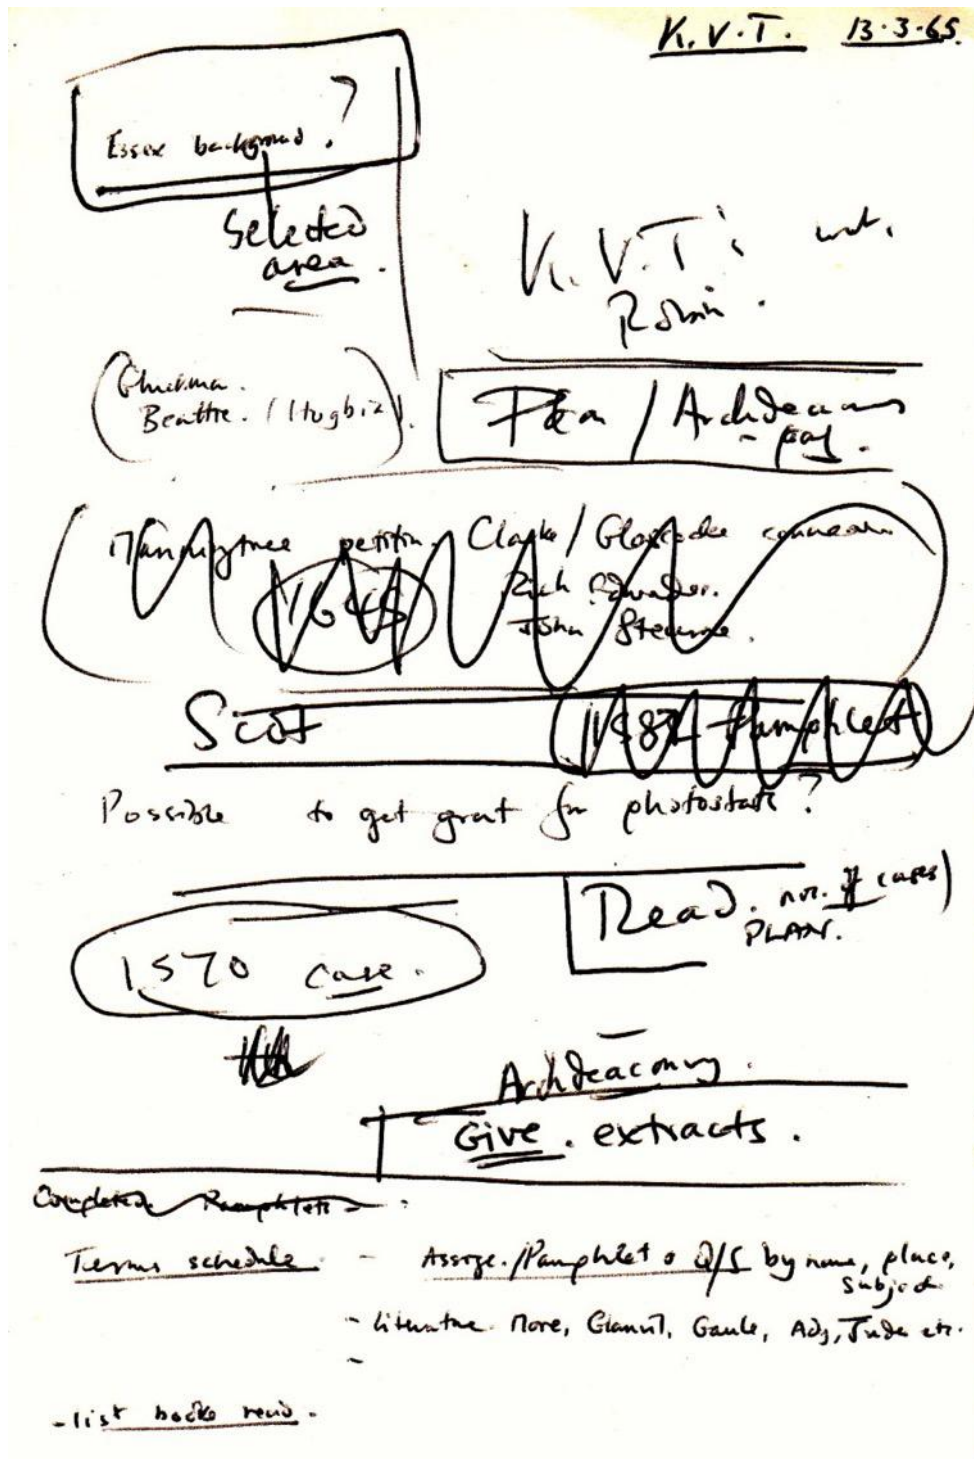 K.V.T. 13.3.65.
Essex background.?
Selected
area.
K.V.T's
Robin.
Beattie.
Plan / Archdeacons
Manningtree petition, Clarke / Glascocke
1645
Rich
John Stearne.
Scot
1582 Pamphlet
Possible to get grant for photostats?
Read. nos. of cases)
PLAN.
1570 case.
Archdeaconry.
Give. extracts.
Completed Pamphlets
Terms schedule. - Assize./Pamphlet & Q/S by name, place,
subject
- literature. More, Glanvil, Gaule, Ady, etc.
-
- list books read.